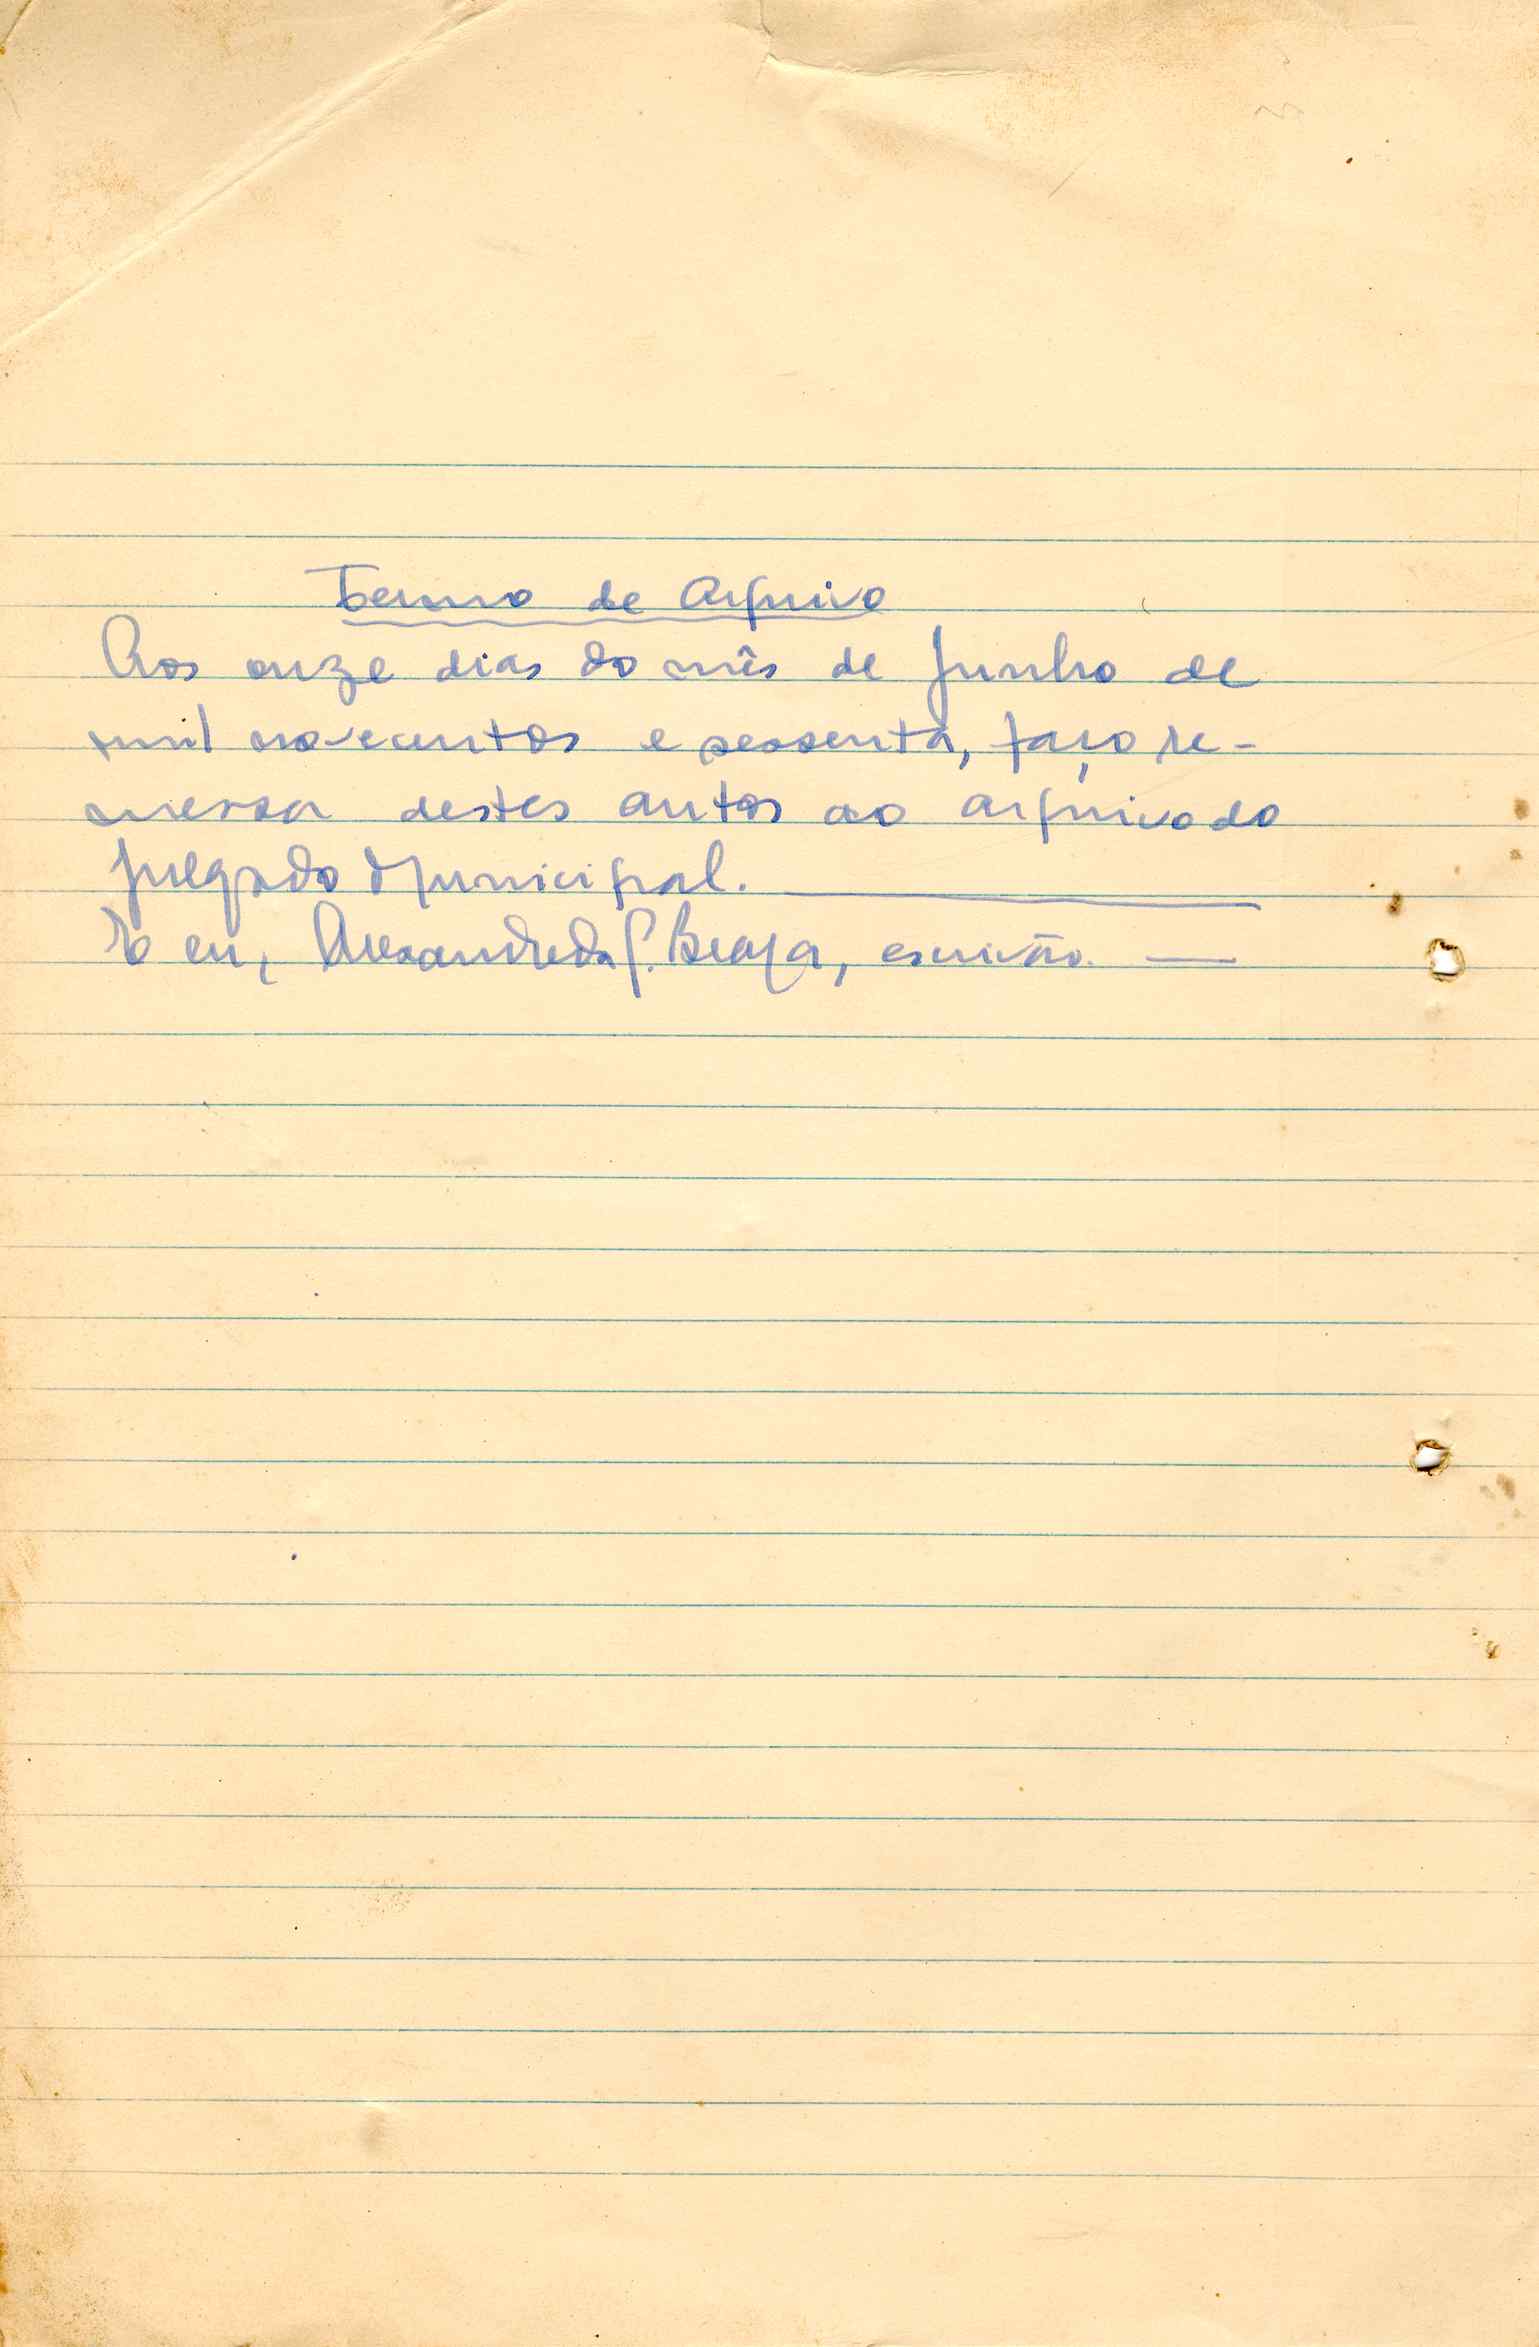 Termo de Arquivo
Aos onze dias do mês de Junho de
mil novecentos e sessenta, faço re-
messa destes autos ao arquivo do
Julgado Municipal.
E eu, Braga, escrivão.